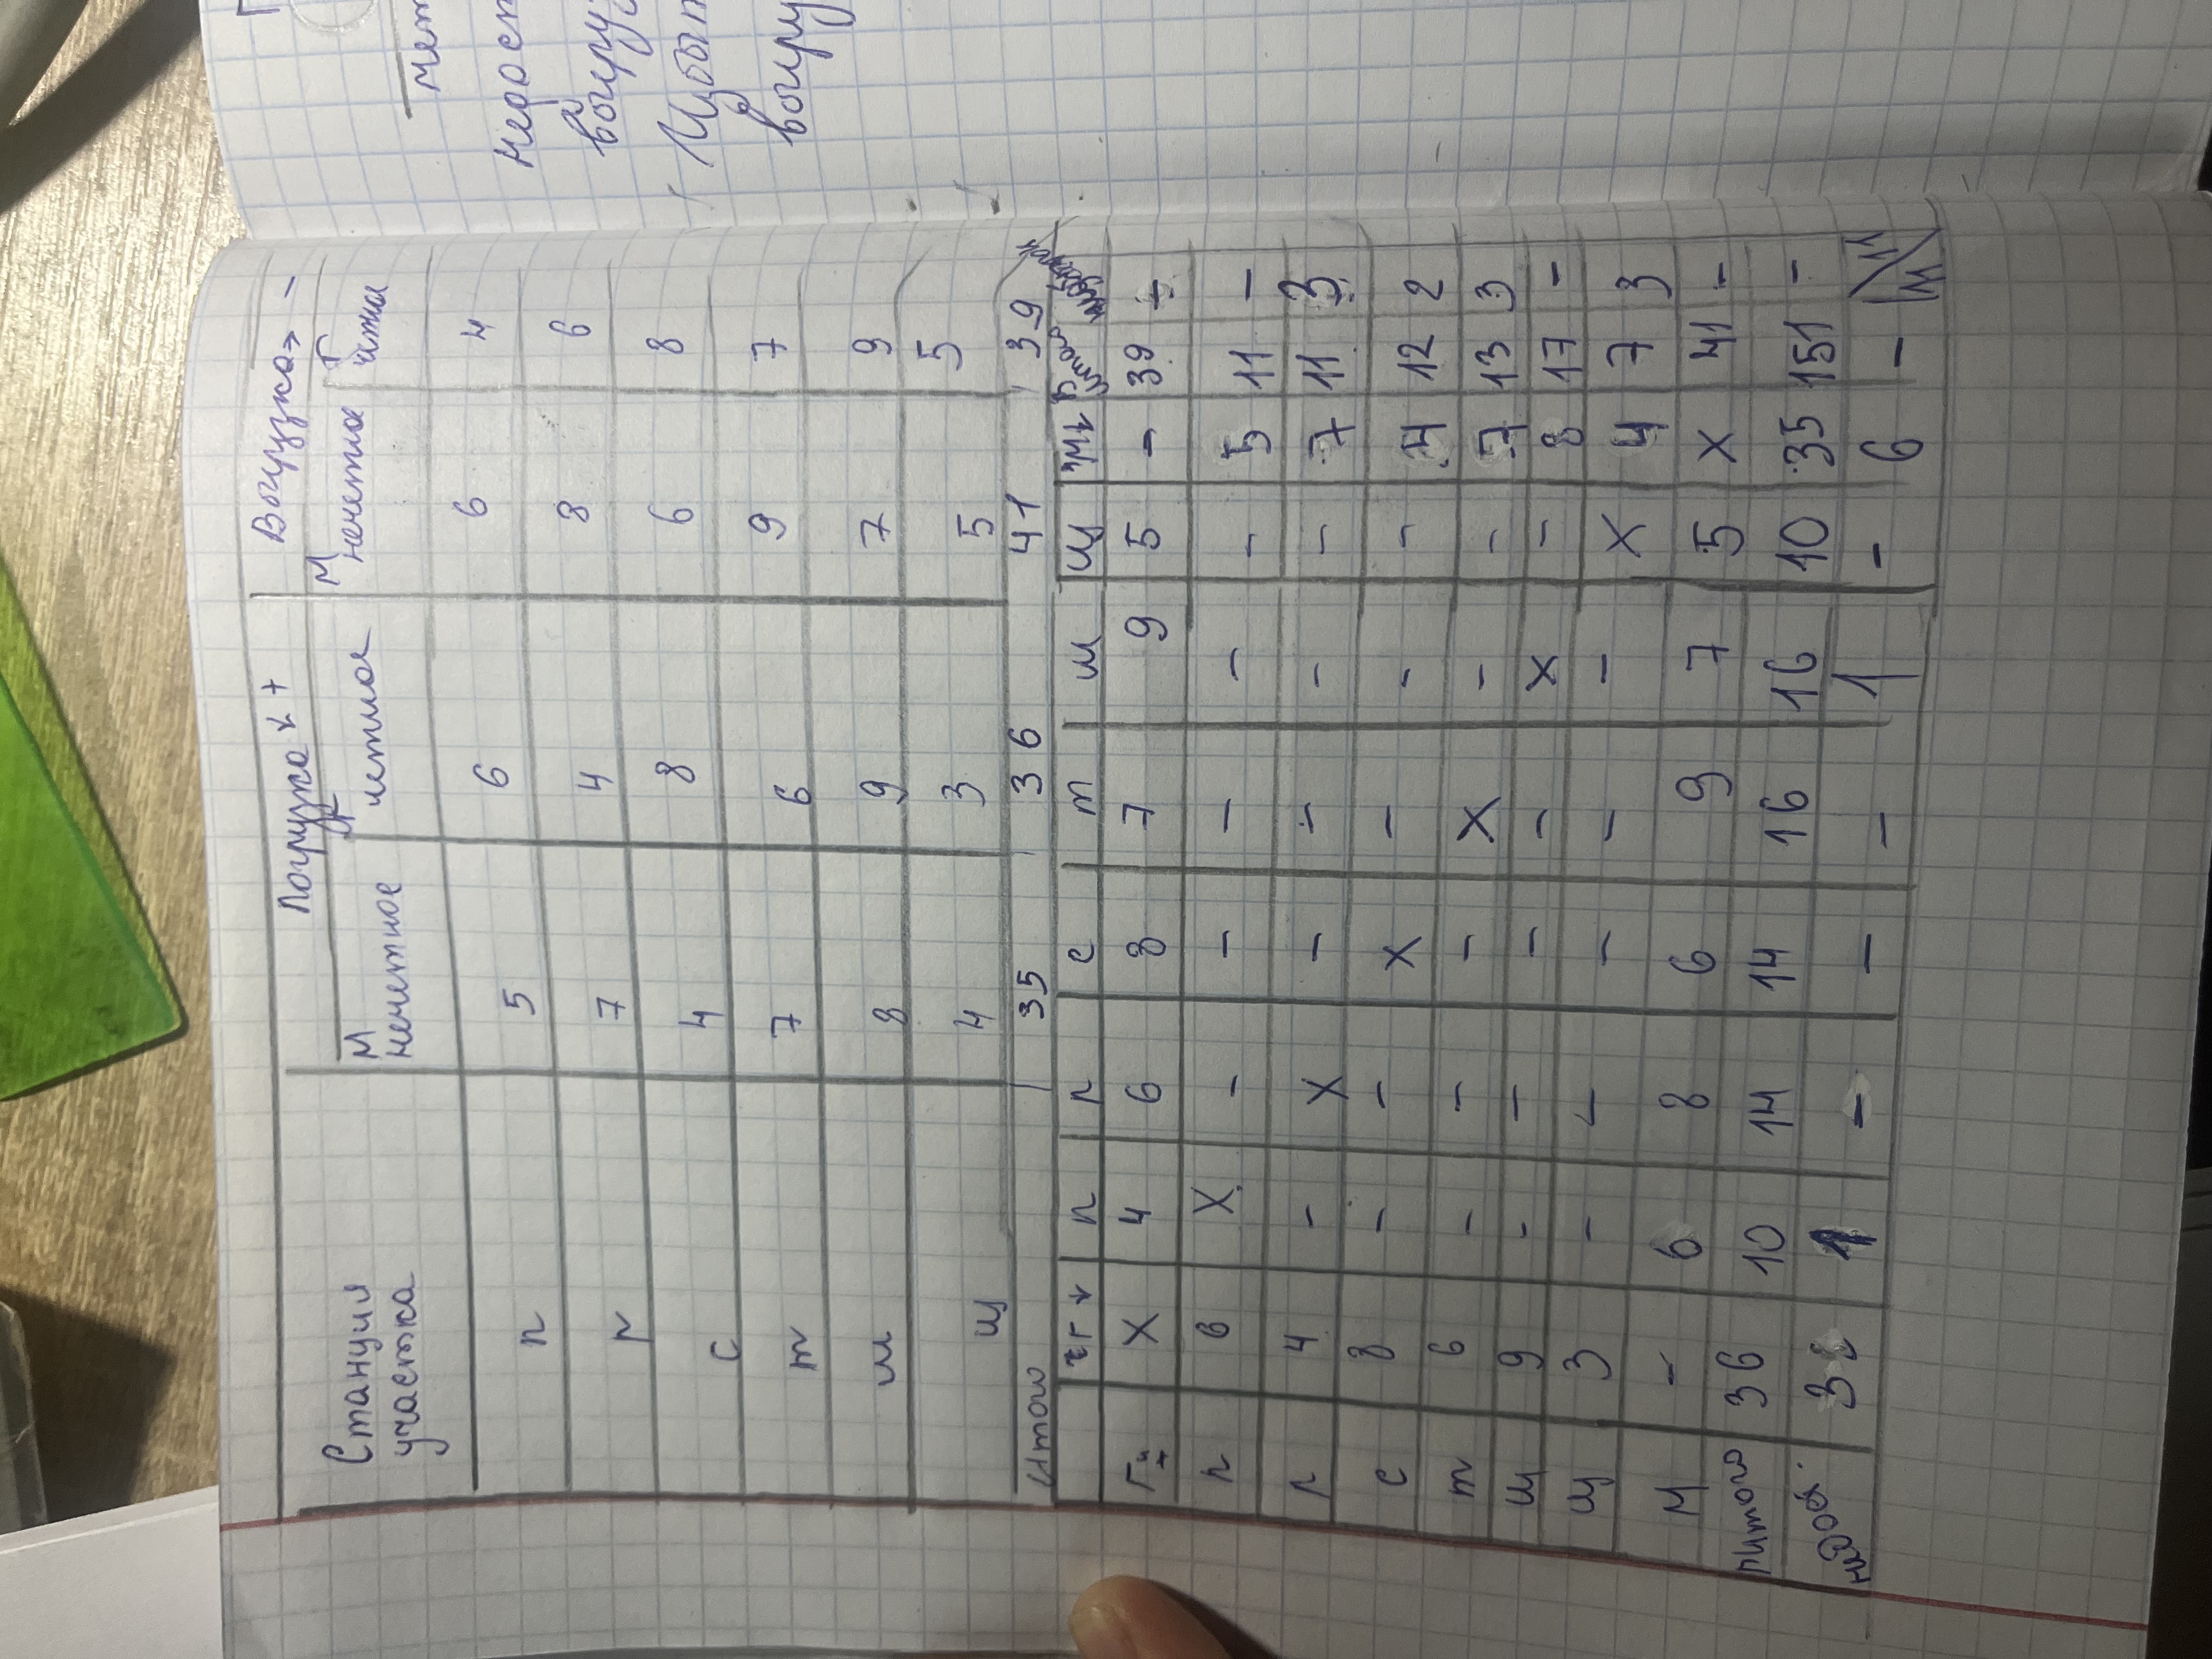 Погрузка + Выгрузка -
Станция участка М нечетное Г четное М нечетное Г четна
п 5 6 6 4
р 7 4 8 6
с 4 8 6 8
т 7 6 9 7
ш 8 9 7 9
щ 4 3 5 5
Итого 35 36 41 39
п р с т ш щ
Х 4 6 8 7 9 5 - 39
п 6 Х - - - - - 5 11 -
р 4 - Х - - - - 7 11 3
с 8 - - Х - - - 4 12 2
т 6 - - - Х - - 7 13 3
ш 9 - - - - Х - 8 17 -
щ 3 - - - - - Х 4 7 3
М - 6 8 6 9 7 5 Х 41 -
итого 36 10 14 14 16 16 10 35 151 -
1 - - - 1 - 6 - 11/11
мет
недост
выгруз
Избыт
выгру